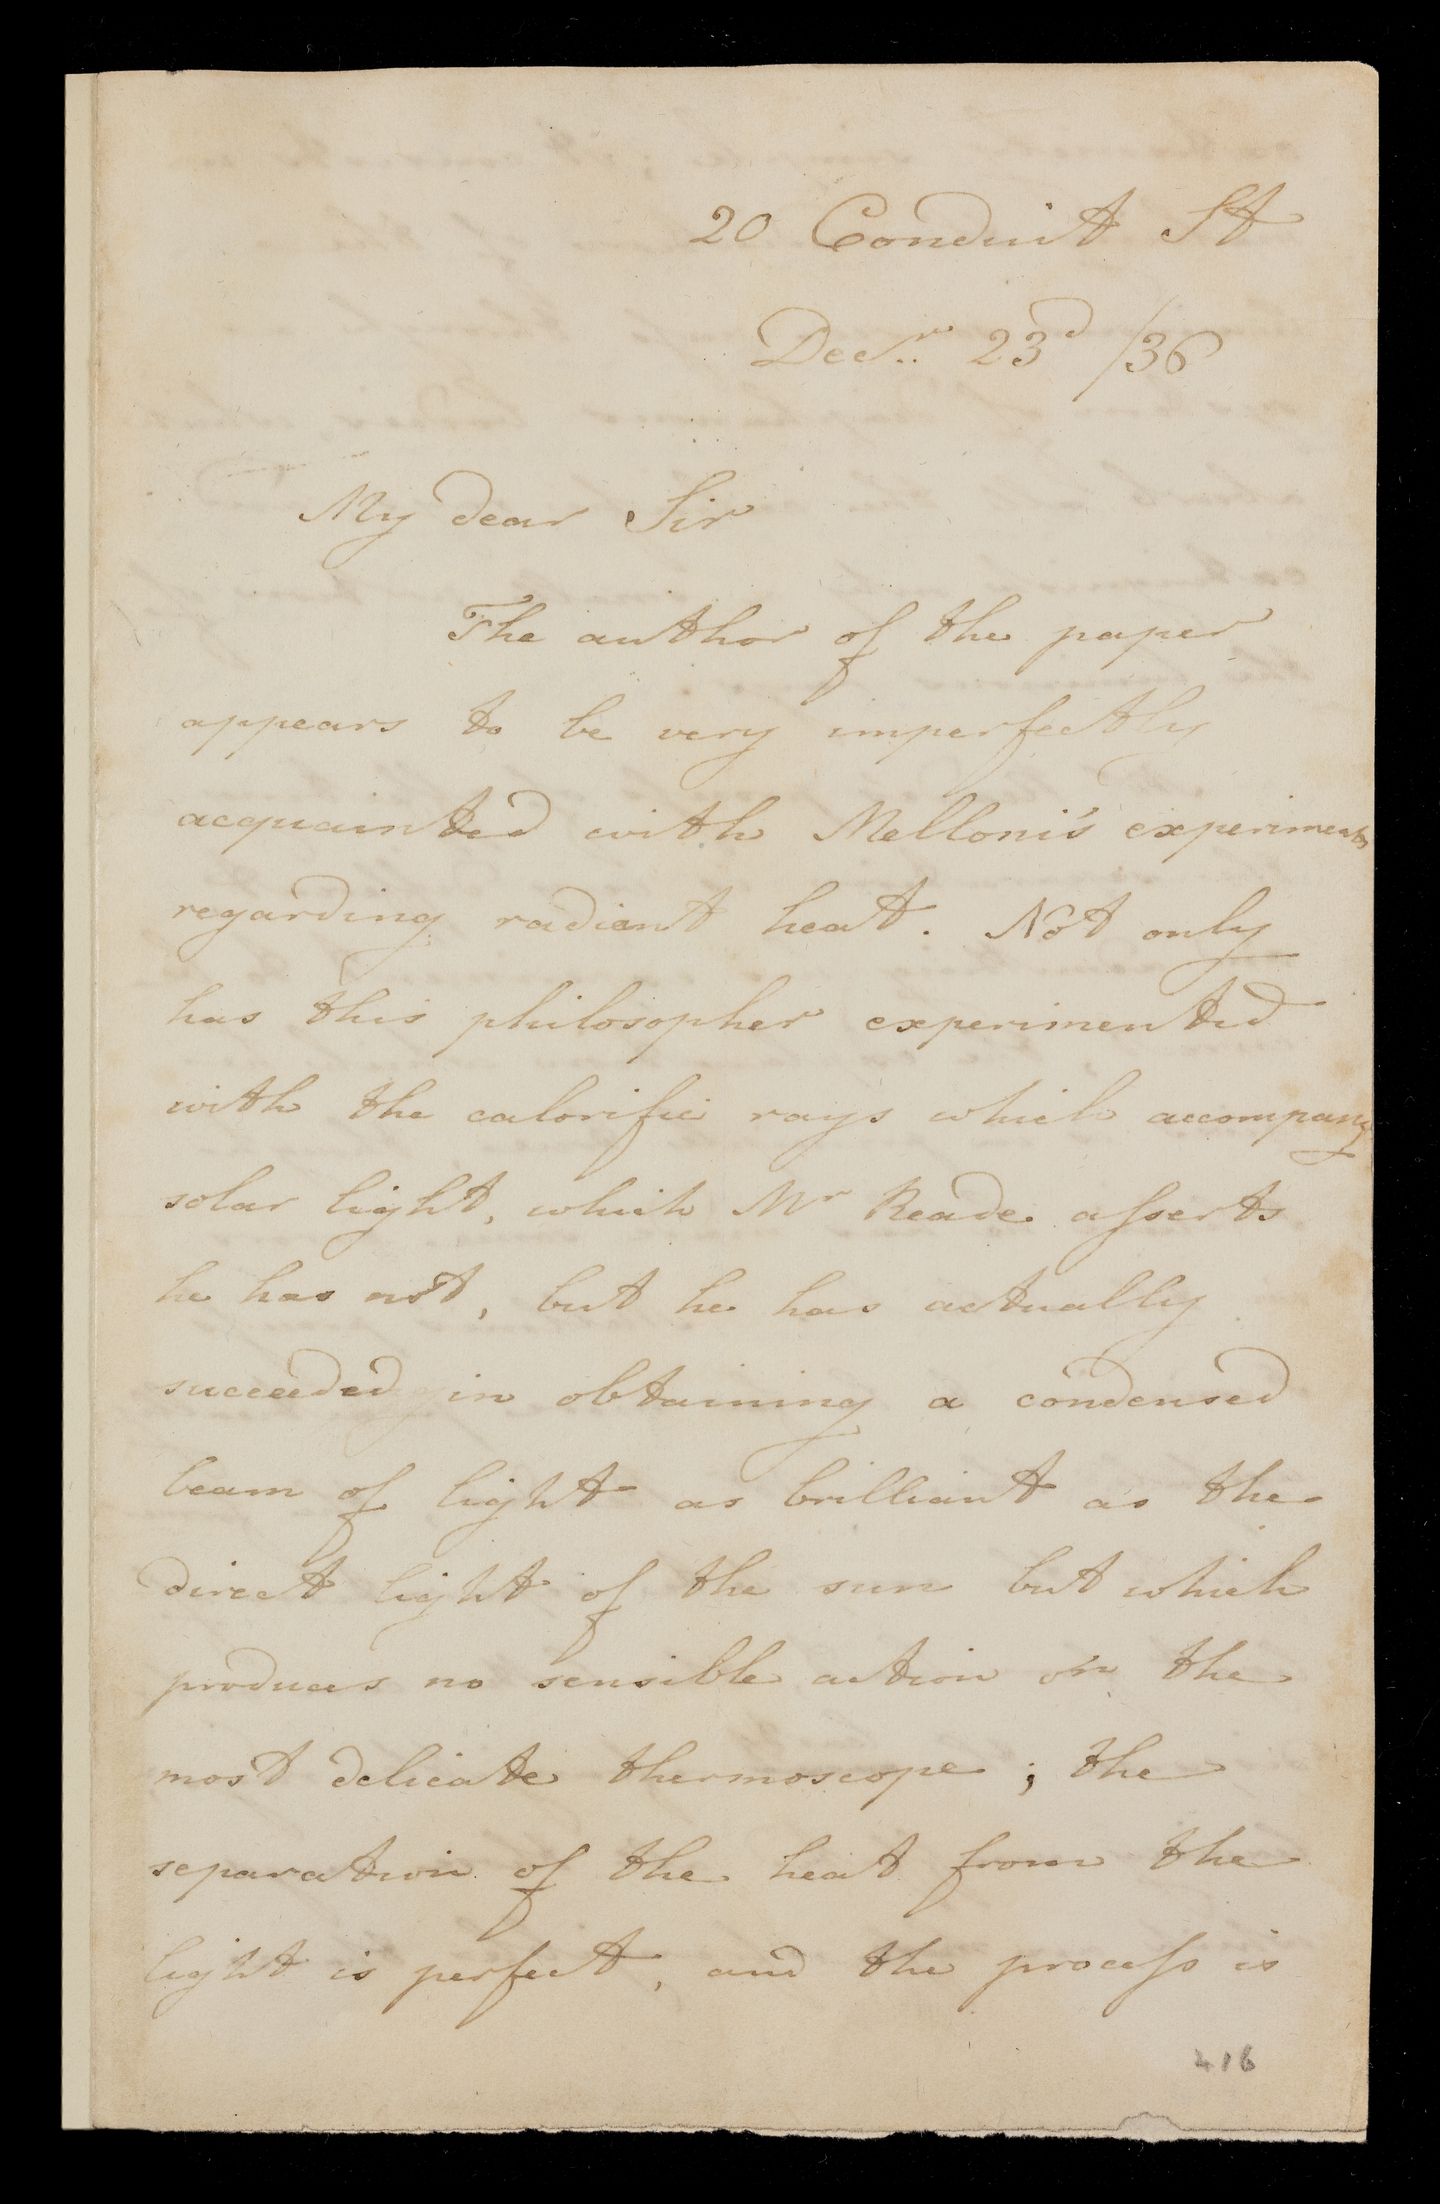 20 Conduit St
Decr. 23d /36
My dear Sir
The author of the paper
appears to be very imperfectly
acquainted with Melloni's experiments
regarding radiant heat. Not only
has this philosopher experimented
with the calorific rays which accompany
solar light, which Mr Reade asserts
he has not, but he has actually
succeeded in obtaining a condensed
beam of light as brilliant as the
direct light of the sun but which
produces no sensible action on the
most delicate thermoscope; the
separation of the heat from the
light is perfect, and the process is
216